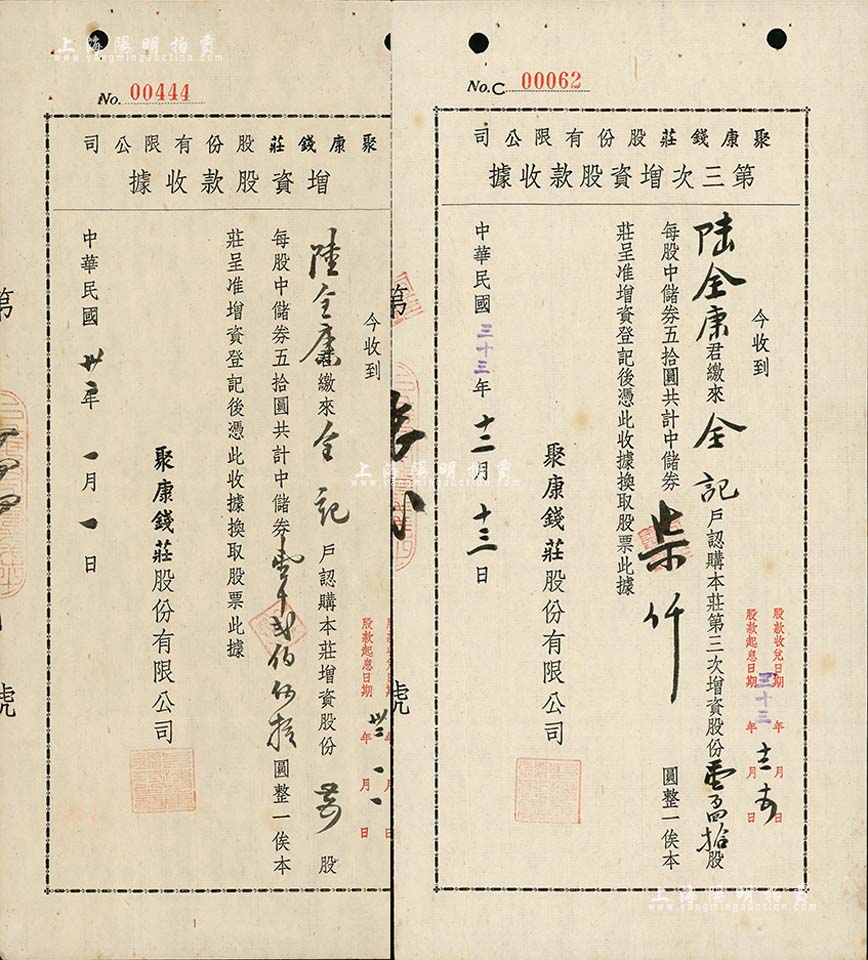 上海陽明拍賣
www.yangmingauction.com
No. 00444
聚康錢莊股份有限公司
增資股款收據
今收到
陸全康君繳來全記戶認購本莊增資股份 股
每股中儲券五拾圓共計中儲券壹千弍佰伍拾圓整一俟本
莊呈准增資登記後憑此收據換取股票此據
聚康錢莊股份有限公司
中華民國卅二年一月一日
股款起息日期 年一月一日
第
號
No. C 00062
聚康錢莊股份有限公司
第三次增資股款收據
股款收兌日期 年 月 日
股款起息日期三十三年 月 日
今收到
陸全康君繳來全記戶認購本莊第三次增資股份 股
每股中儲券五拾圓共計中儲券柒仟圓整一俟本
莊呈准增資登記後憑此收據換取股票此據
聚康錢莊股份有限公司
中華民國三十三年十二月十三日
上海陽明拍賣
www.yangmingauction.com
上海陽明拍賣
www.yangmingauction.com